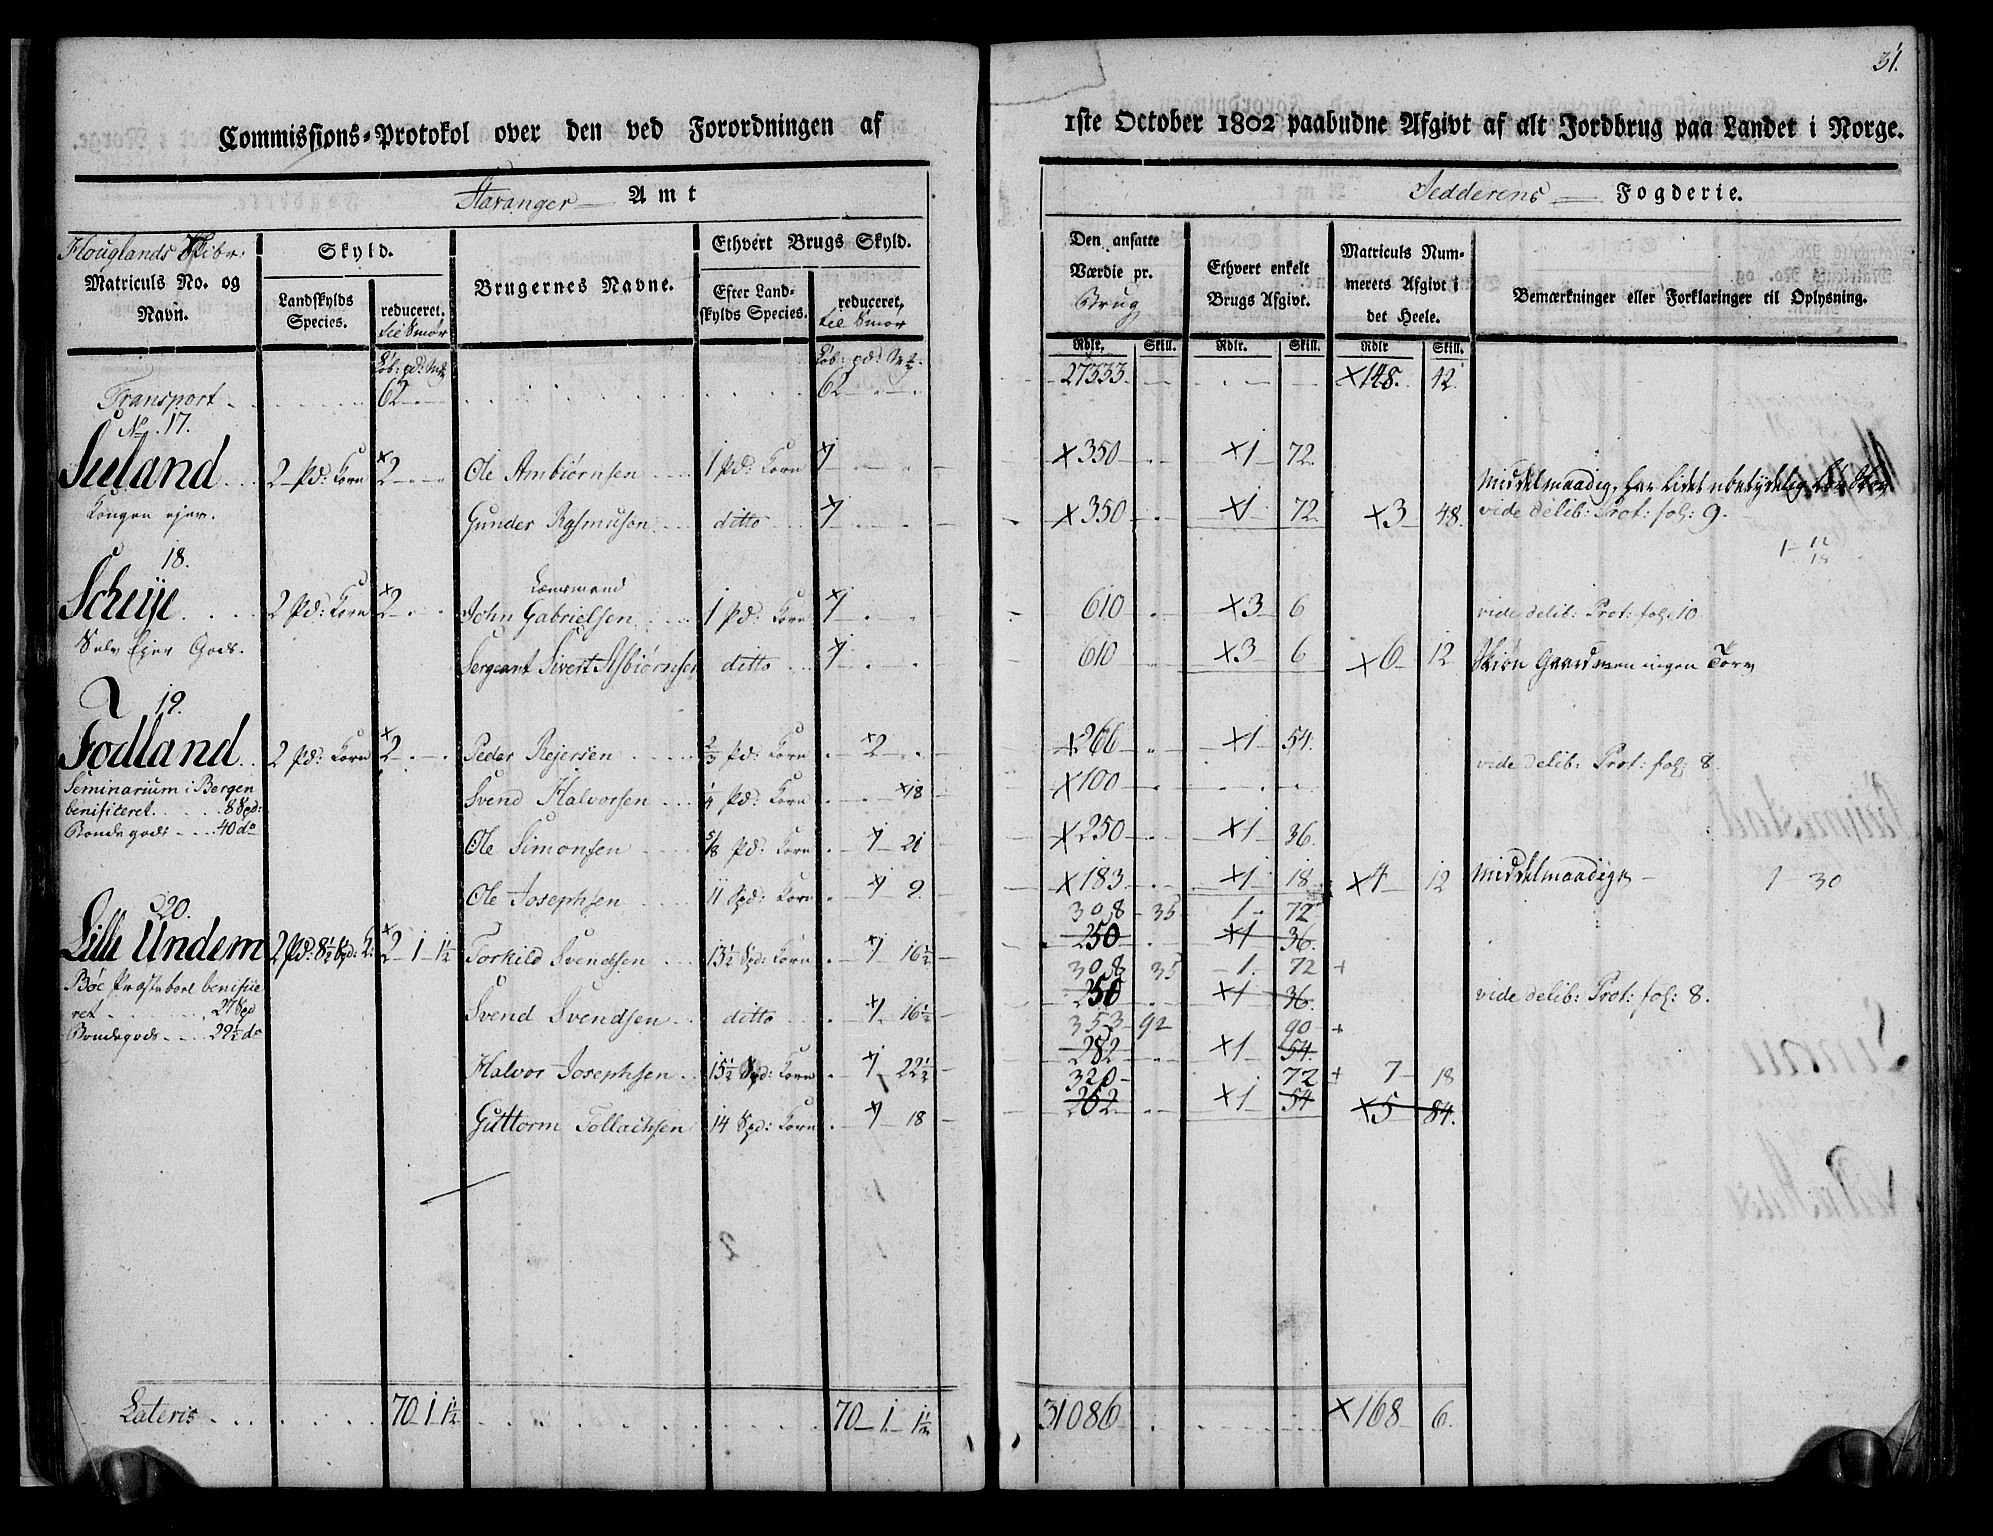 31.
Commissions=Protokol over den ved Forordningen af 1ste October 1802 paabudne Afgivt af alt Jordbrug paa Landet i Norge.
Stavanger Amt
Jedderens Fogderie.
Houglands Skibr:
Matriculs No. og Navn.
Skyld.
Landskylds Species.
reduceret.
til Smør
Brugernes Navne.
Ethvert Brugs Skyld.
Efter Landskylds Species.
reduceret,
til Smør
Den ansatte Værdie pr.
Brug
Ethvert enkelt Brugs Afgivt.
Matriculs Nummerets Afgivt i det Heele.
Bemærkninger eller Forklaringer til Oplysning.
Rdlr. Skill. Rdlr. Skill. Rdlr Skill.
Transport 62 . . 62 . . 27333 . . . ×148. 42.
No. 17.
Seeland 2 Pd: Korn ×2 . . Ole Ambiørnsen 1 Pd: Korn ×1 . . ×350 . ×1 72.
Kongen ejer. Gunder Rasmusen ditto ×1 . . ×350 . ×1 72 ×3 48. vide delib: Prot: fol: 9.
18.
Scheije 2 Pd: Korn ×2 . . Lænsmand
John Gabrielsen 1 Pd: Korn ×1 . . 610 . ×3 6 vide delib: Prot: fol: 10.
Selv Ejer Gods. Sergeant Sivert Asbiørnsen ditto ×1 . . 610 . ×3 6 ×6 12 Skiøn Gaard men ingen Torv
19.
Fodland 2 Pd: Korn ×2 . . Peder Rejersen 2/3 Pd: Korn . ×2 . ×266 . ×1 54. vide delib: Prot: fol: 8.
Seminarium i Bergen
benificeret 8 Spd: Svend Halvorsen 1/4 Pd: Korn . . ×18 ×100 . . .
Bondegods 40 do Ole Simonsen 5/8 Pd: Korn . ×1 21 ×250 . ×1 36.
Ole Josephsen 11 Spd: Korn . ×1 9. ×183 . ×1 18 ×4 12 Middelmaadige 1 30
20.
308 35 1 72
Lille Undem 2 Pd: 8½ Spd: K: ×2 1 1½ Torkild Svendsen 13½ Spd: Korn . ×1 16½ 250 . ×1 36.
308 35 1. 72 +
Bøe Præstebord benificeret 27 Spd Svend Svendsen ditto ×1 16½ 250 . ×1 36. vide delib: Prot: fol: 8.
353 92 90 +
Bondegods 29½ do Halvor Josephsen 15½ Spd: Korn . ×1 22½ 282 . ×1 54.
320 72 + 7 18
Guttorm Tollachsen 14 Spd: Korn . ×1 18 262 . ×1 54 ×5 84.
Lateris 70 1 1½ 70 1. 1½ 31086 . . . ×168 6.